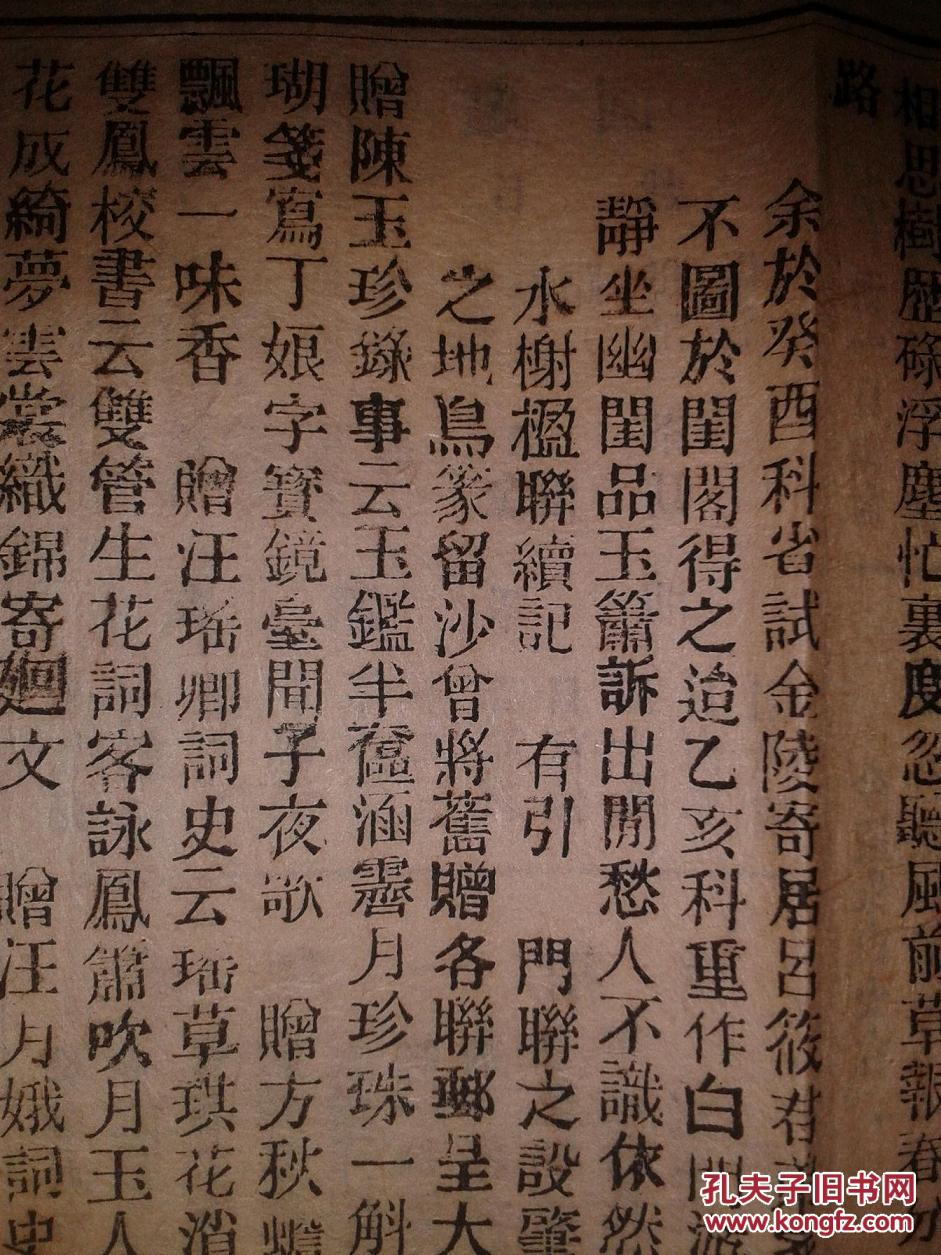 相思樹歷碌浮塵忙裏度忽聽風前草報春
路
余於癸酉科省試金陵寄居呂筱君
不圖於閨閣得之迨乙亥科重作白門
靜坐幽閨品玉簫訴出閒愁人不識依然
水榭楹聯續記 有引 門聯之設肇
之地鳥篆留沙曾將舊贈各聯郵呈大
贈陳玉珍錄事云玉鑑半奩涵霽月珍珠一斛
瑚箋寫丁娘字寶鏡臺間子夜歌 贈方秋蟾
飄雲一味香 贈汪瑤卿詞史云瑤草琪花消
雙鳳校書云雙管生花詞客詠鳳簫吹月玉人
花成綺夢雲裳織錦寄廻文 贈汪月娥詞史
孔夫子旧书网
www.kongfz.com